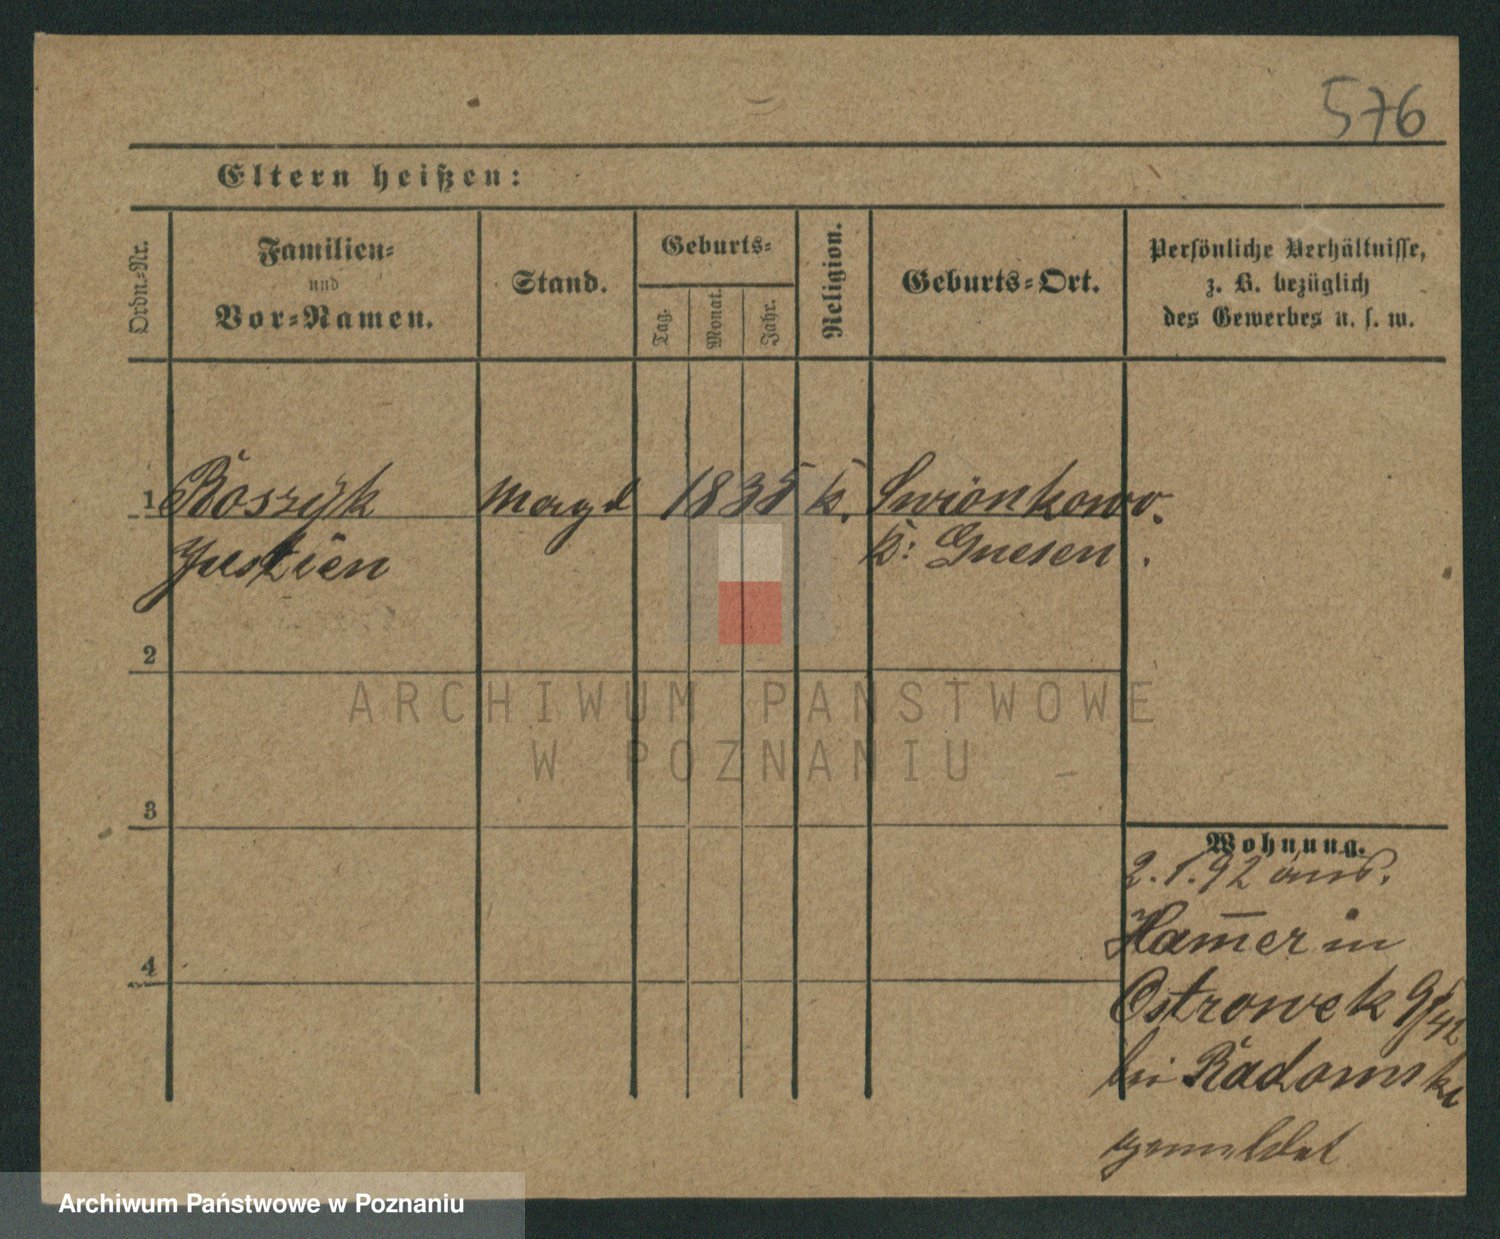 576
Eltern heißen:
Ordn.-Nr.
Familien-
und
Vor-Namen.
Stand.
Geburts-
Tag.
Monat.
Jahr.
Religion.
Geburts-Ort.
Persönliche Verhältnisse,
z. B. bezüglich
des Gewerbes u. s. w.
1 Roszyk Magd 1835 k.
Justien K: Gnesen.
2
ARCHIWUM PAŃSTWOWE
W POZNANIU
3
Wohnung.
2.1.92 aus.
Hamer in
4
Ostrowek 9/42
bei Radomski
gemeldet
Archiwum Państwowe w Poznaniu